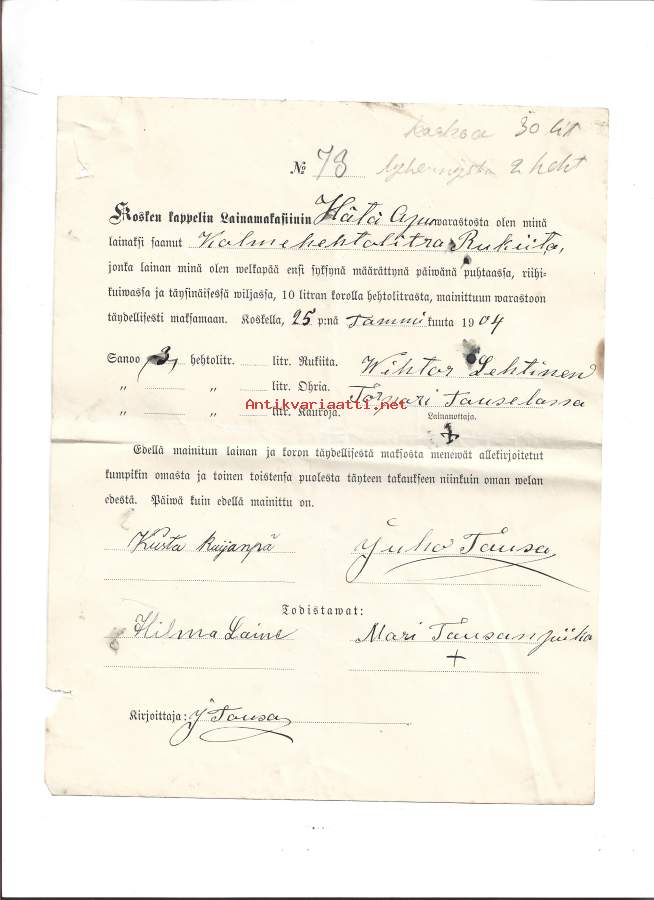 korkoa 30 lit
№ 73 lyhennystä 2 heht
Kosken kappelin Lainamakasiinin Hätä Apu-warastosta olen minä
lainaksi saanut Kolmehehtolitraa Rukiita,
jonka lainan minä olen welkapää ensi syksynä määrättynä päiwänä puhtaassa, riihi-
kuiwassa ja täysinäisessä wiljassa, 10 litran korolla hehtolitrasta, mainittuun warastoon
täydellisesti maksamaan. Koskella, 25 p:nä Tammi kuuta 1904
Sanoo 3, hehtolitr. litr. Rukiita. Wihtor Lehtinen
„ „ litr. Ohria. Torpari Tauselassa
„ „ litr. Kauroja. Lainanottaja.
Antikvariaatti.net
Edellä mainitun lainan ja koron täydellisestä maksosta menewät allekirjoitetut
kumpikin omasta ja toinen toistensa puolesta täyteen takaukseen niinkuin oman welan
edestä. Päiwä kuin edellä mainittu on.
Kusta Kuijanpä Juho Tausa
Todistawat:
Hilma Laine Mari Tausan piika
Kirjoittaja: J Tausa